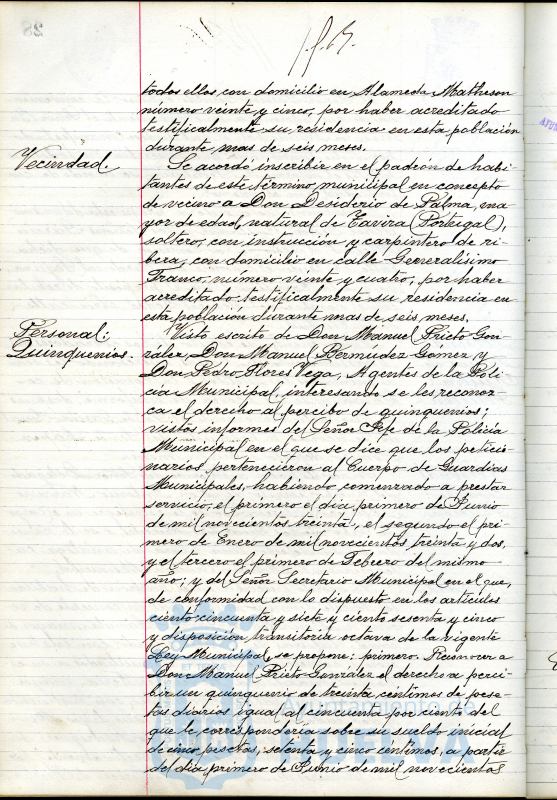 todos ellos, con domicilio en Alameda Matheson
número veinte y cinco, por haber acreditado
testificalmente su residencia en esta población
durante mas de seis meses.
Vecindad.
Se acordó inscribir en el padrón de habi-
tantes de este término municipal en concepto
de vecino a Don Desiderio de Palma, ma
yor de edad, natural de Tavira (Portugal),
soltero, con instrucción y carpintero de ri-
bera, con domicilio en calle Generalísimo
Franco, número veinte y cuatro, por haber
acreditado testificalmente su residencia en
esta población durante mas de seis meses.
Personal:
Quinquenios.
Visto escrito de Don Manuel Prieto Gon-
zález, Don Manuel Bermúdez Gomez y
Don Pedro Flores Vega, Agentes de la Poli-
cía Municipal, interesando se les reconoz-
ca el derecho al percibo de quinquenios;
vistos informes del Señor Jefe de la Policía
Municipal en el que se dice que los peticio-
narios pertenecieron al Cuerpo de Guardias
Municipales, habiendo comenzado a prestar
servicio, el primero el dia primero de Junio
de mil novecientos treinta, el segundo el pri-
mero de Enero de mil novecientos treinta y dos,
y el tercero el primero de Febrero del mismo
año; y del Señor Secretario Municipal en el que,
de conformidad con lo dispuesto en los artículos
ciento cincuenta y siete y ciento sesenta y cinco
y disposición transitoria octava de la vigente
Ley Municipal, se propone: primero. Reconocer a
Don Manuel Prieto González el derecho a perci-
bir un quinquenio de treinta céntimos de pese-
tas diarios igual al cincuenta por ciento del
que le correspondería sobre su sueldo inicial
de cinco pesetas, setenta y cinco céntimos, a partir
del dia primero de Junio de mil novecientos
Ayuntamiento de
HUELVA